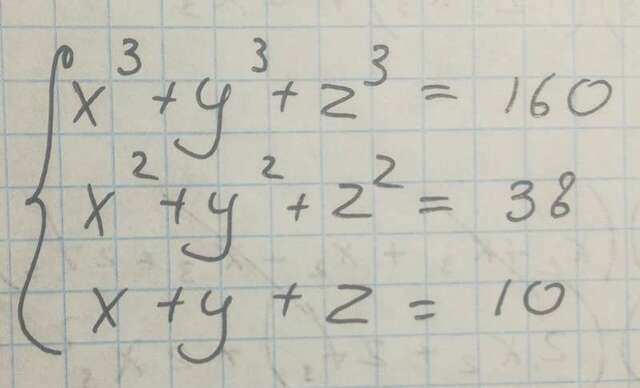 x³ + y³ + z³ = 160
x² + y² + z² = 38
x + y + z = 10